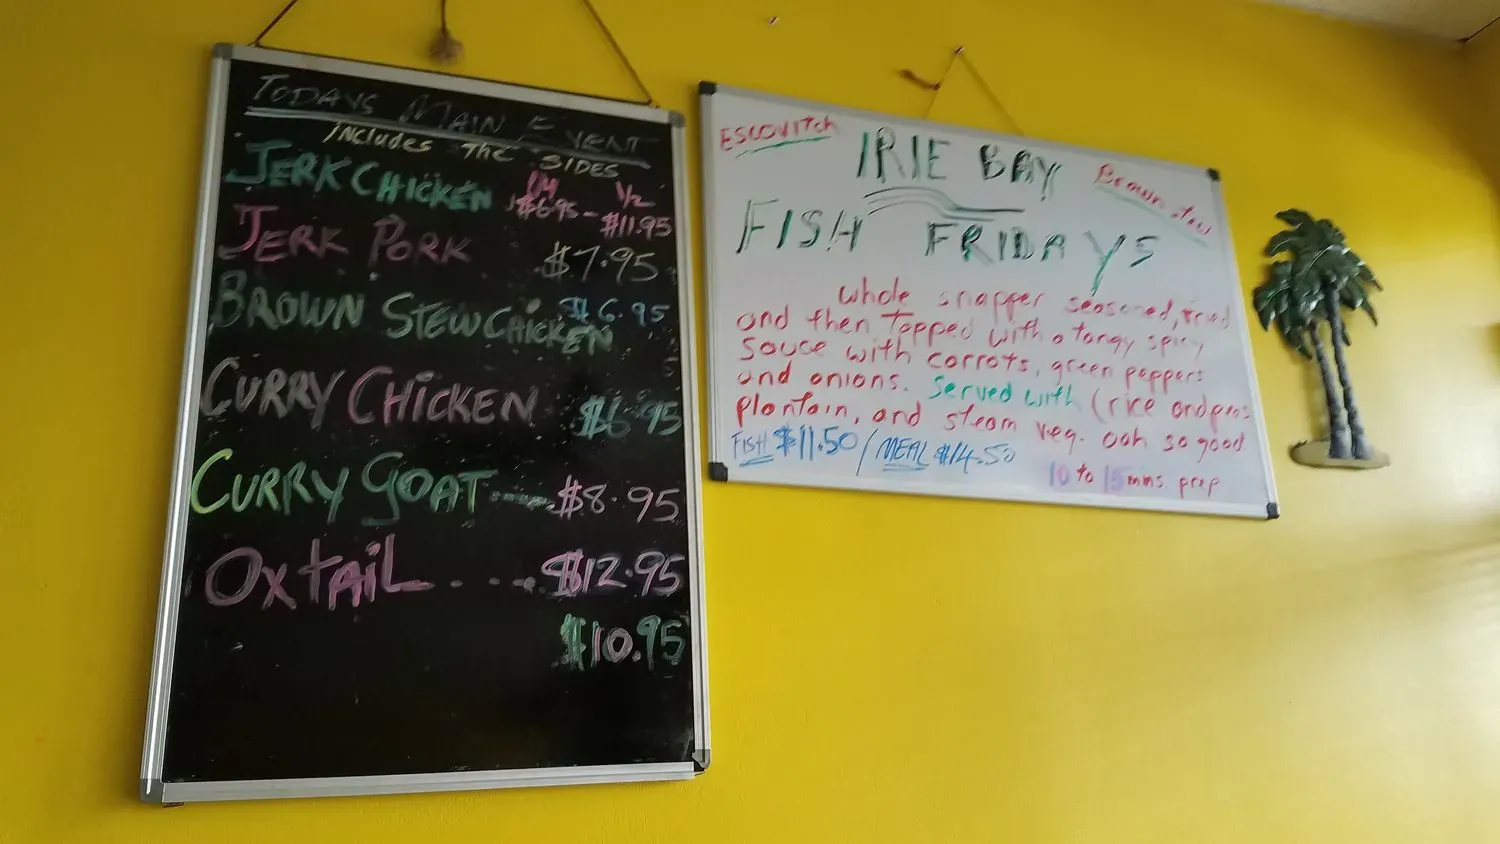 TODAYS MAIN EVENT
INCLUDES THE SIDES
JERK CHICKEN 1/4 $6.95 - 1/2 $11.95
JERK PORK $7.95
BROWN STEW CHICKEN $6.95
CURRY CHICKEN $6.95
CURRY GOAT $8.95
OXTAIL .... $12.95
$10.95
ESCOVITCH IRIE BAY Brown stew
FISH FRIDAYS
whole snapper seasoned, fried
and then topped with a tangy spicy
sauce with carrots, green peppers
and onions. Served with (rice and peas
plantain, and steam veg. ooh so good
FISH $11.50 / MEAL $14.50
10 to 15 mins prep